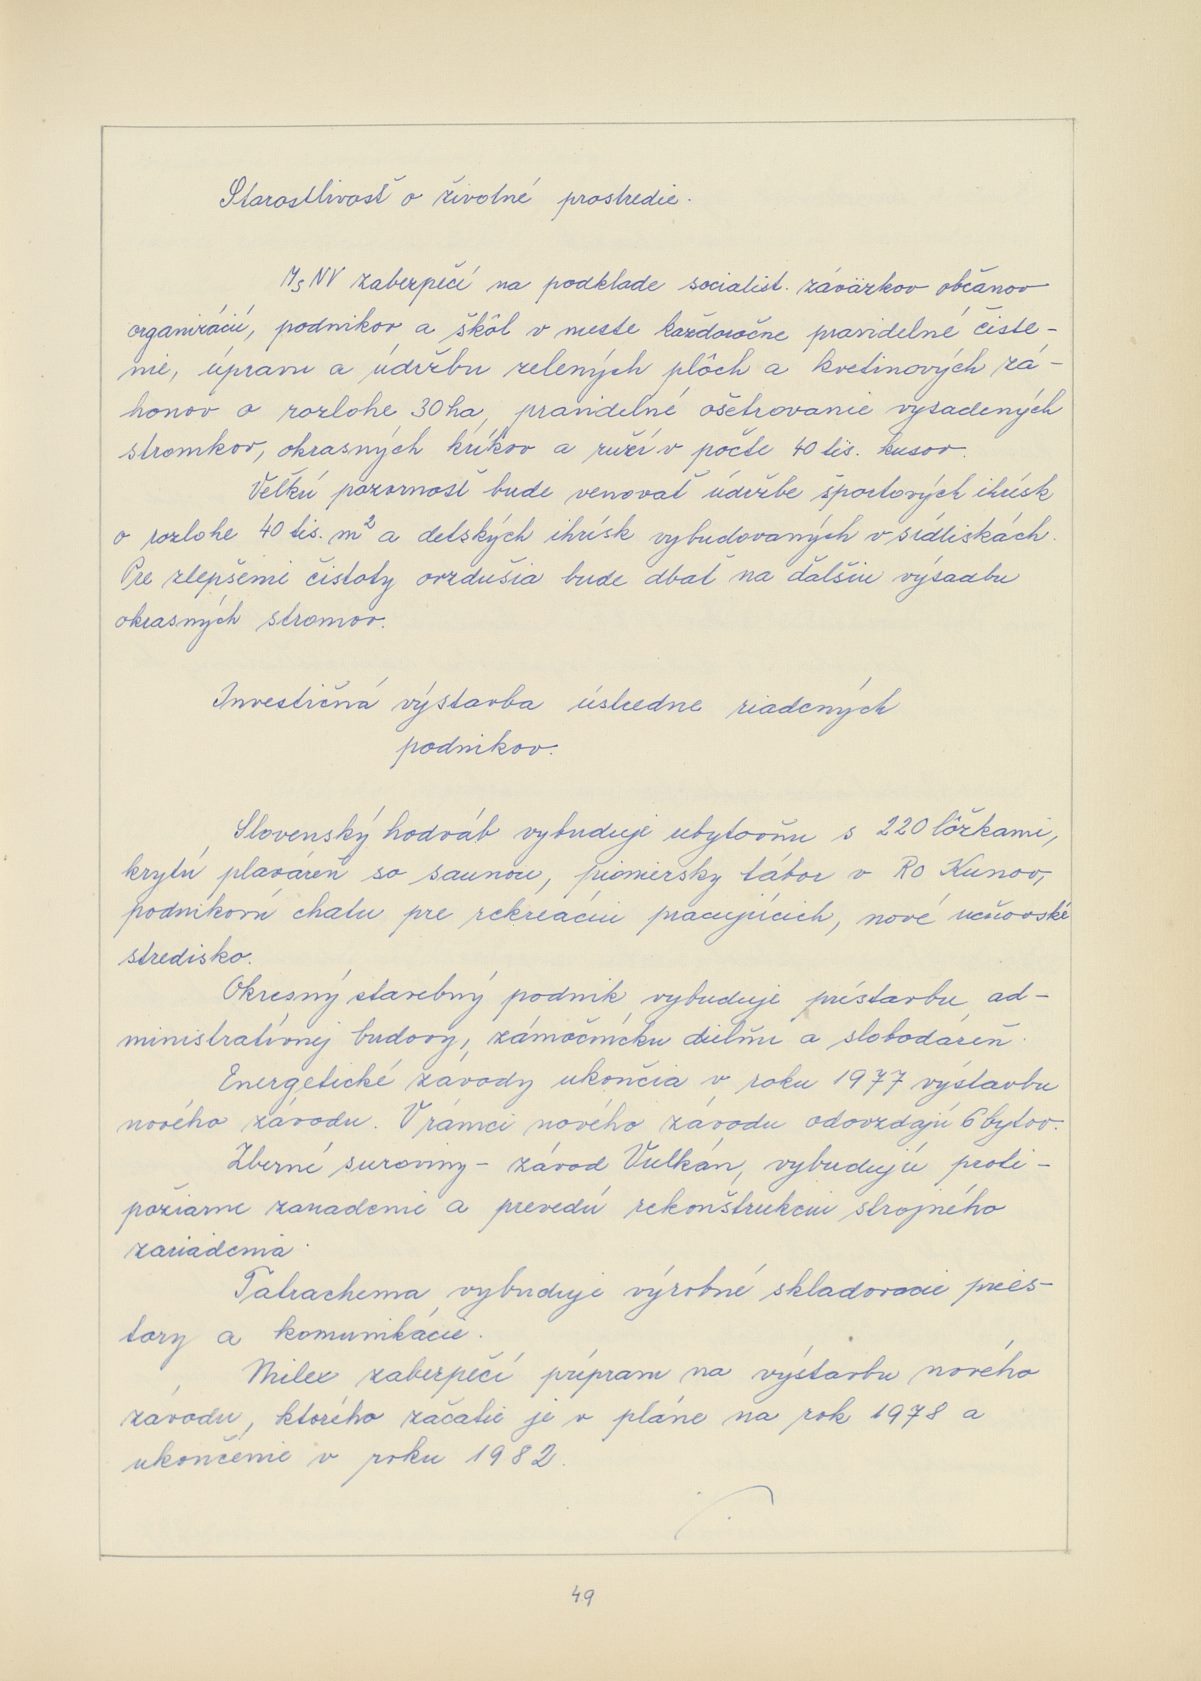 Starostlivosť o životné prostredie.
MsNV zabezpečí na podklade socialist. záväzkov občanov
organizácií, podnikov a škôl v meste každoročne pravidelné čiste-
nie, úpravu a údržbu zelených plôch a kvetinových zá-
honov o rozlohe 30 ha, pravidelné ošetrovanie vysadených
stromkov, okrasných kríkov a ruží v počte 40 tis. kusov.
Veľkú pozornosť bude venovať údržbe športových ihrísk
o rozlohe 40 tis. m² a detských ihrísk vybudovaných v sídliskách.
Pre zlepšenie čistoty ovzdušia bude dbať na ďalšiu výsadbu
okrasných stromov.
Investičná výstavba ústredne riadených
podnikov.
Slovenský hodváb vybuduje ubytovňu s 220 lôžkami,
krytú plaváreň so saunou, pioniersky tábor v RO Kunov,
podnikovú chatu pre rekreáciu pracujúcich, nové učňovské
stredisko.
Okresný stavebný podnik vybuduje prístavbu ad-
ministratívnej budovy, zámočnícku dielňu a slobodáreň.
Energetické závody ukončia v roku 1977 výstavbu
nového závodu. V rámci nového závodu odovzdajú 6 bytov.
Zberné suroviny - závod Vulkán, vybudujú proti-
požiarne zariadenie a prevedú rekonštrukciu strojného
zariadenia.
Tatrachema vybuduje výrobné skladovacie pries-
tory a komunikácie.
Milex zabezpečí prípravu na výstavbu nového
závodu, ktorého začatie je v pláne na rok 1978 a
ukončenie v roku 1982.
49